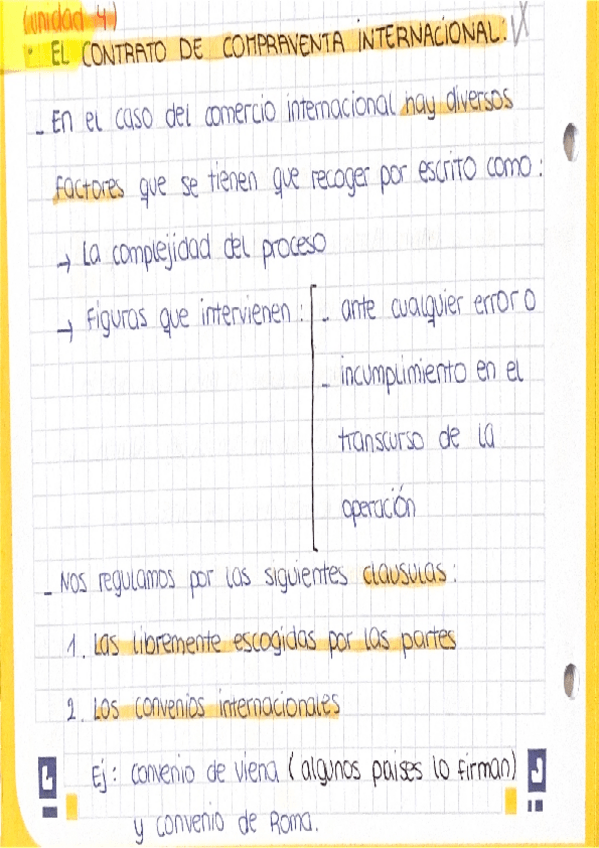 (unidad 4)
· EL CONTRATO DE COMPRAVENTA INTERNACIONAL:
- En el caso del comercio internacional hay diversos
factores que se tienen que recoger por escrito como:
→ La complejidad del proceso
→ Figuras que intervienen: - ante cualquier error o
- incumplimiento en el
transcurso de la
operación
- Nos regulamos por las siguientes clausulas:
1. Las libremente escogidas por las partes
2. Los convenios internacionales
Ej: convenio de Viena (algunos paises lo firman)
y convenio de Roma.